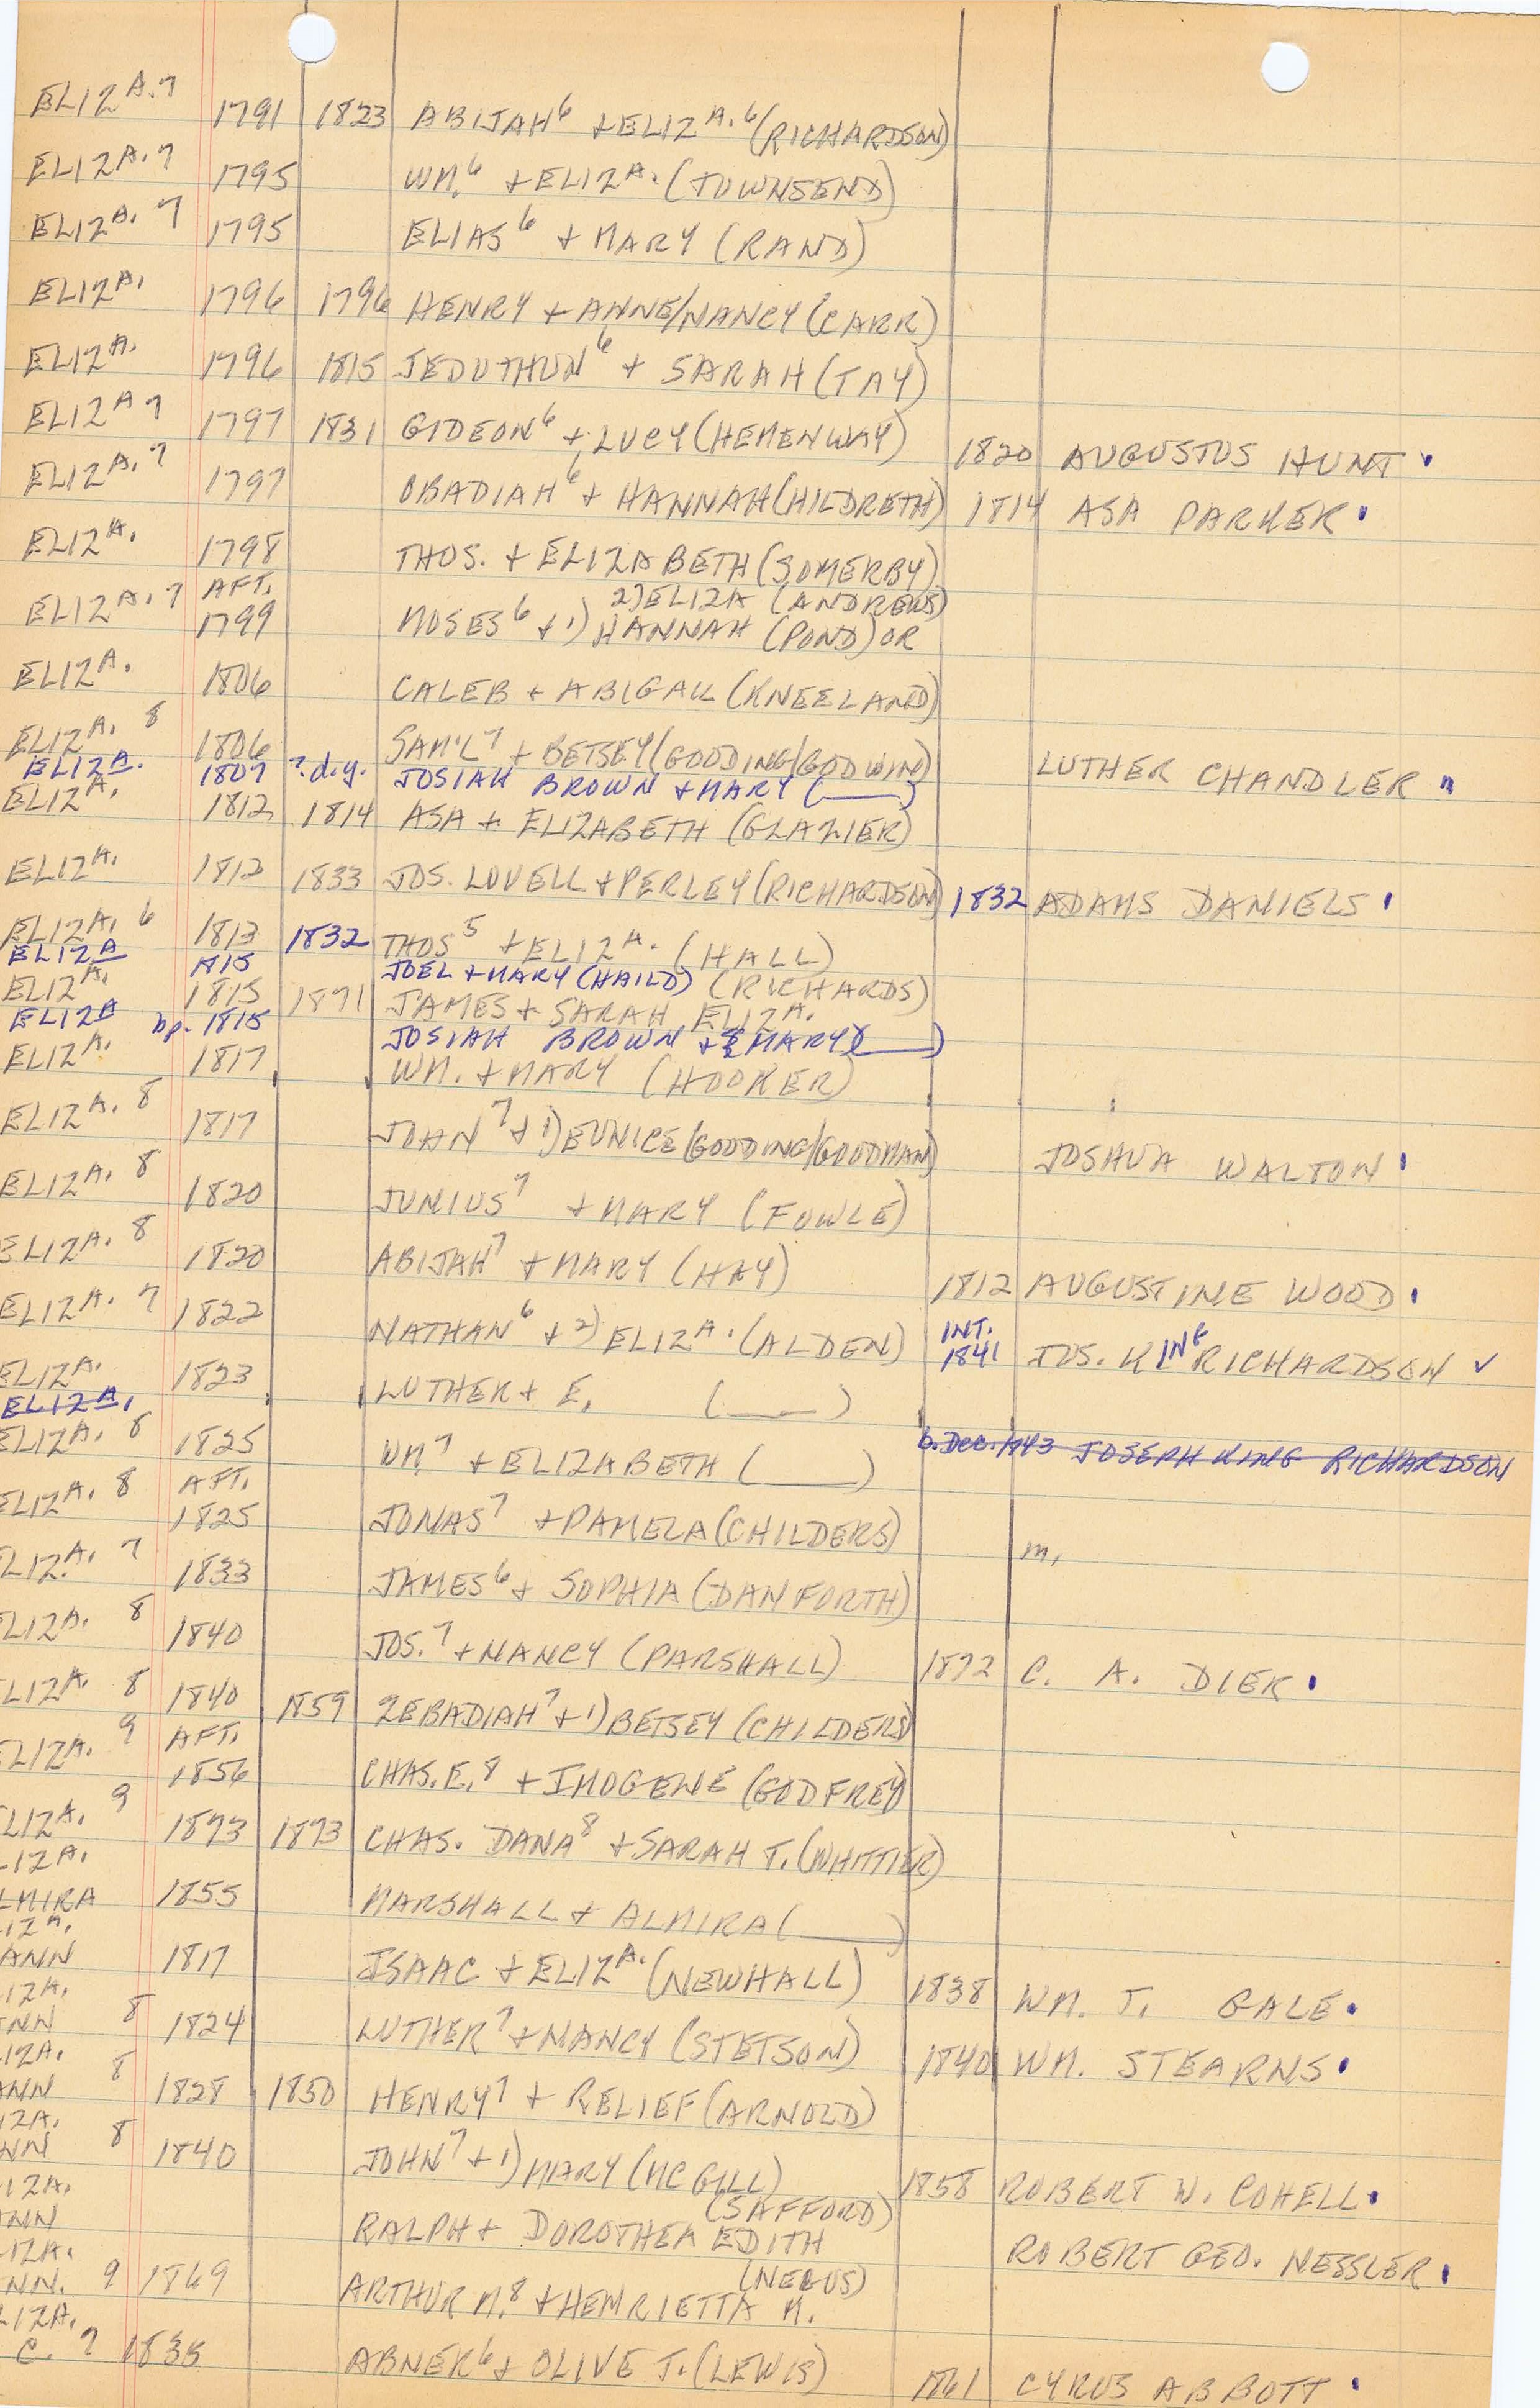 ELIZA.7 1791 1823 ABIJAH6 + ELIZA.6 (RICHARDSON)
ELIZA.7 1795 WM.6 + ELIZA. (TOWNSEND)
ELIZA.7 1795 ELIAS6 + MARY (RAND)
ELIZA. 1796 1796 HENRY + ANNE/NANCY (CARR)
ELIZA. 1796 1815 JEDUTHUN6 + SARAH (TAY)
ELIZA.7 1797 1831 GIDEON6 + LUCY (HEMENWAY) 1820 AUGUSTUS HUNT
ELIZA.7 1797 OBADIAH6 + HANNAH (HILDRETH) 1814 ASA PARKER
ELIZA. 1798 THOS. + ELIZABETH (SOMERBY)
AFT. 2) ELIZA (ANDREWS)
ELIZA.7 1799 MOSES6 + 1) HANNAH (POND) OR
ELIZA. 1806 CALEB + ABIGAIL (KNEELAND)
ELIZA.8 1806 SAM'L7 + BETSEY (GOODING/GODWIN) LUTHER CHANDLER
ELIZA. 1807 ?.d.y. JOSIAH BROWN + MARY (___)
ELIZA. 1812 1814 ASA + ELIZABETH (GLAZIER)
ELIZA. 1812 1833 JOS. LOVELL + PERLEY (RICHARDSON) 1832 ADAMS DANIELS
ELIZA.6 1813 1832 THOS5 + ELIZA. (HALL)
ELIZA 1815 JOEL + MARY (HAILD)
ELIZA. 1815 1871 JAMES + SARAH ELIZA. (RICHARDS)
ELIZA bp. 1815 JOSIAH BROWN + MARY (___)
ELIZA. 1817 WM. + MARY (HOOKER)
ELIZA.8 1817 JOHN7 + 1) EUNICE (GOODING/GOODMAN) JOSHUA WALTON
ELIZA.8 1820 JUNIUS7 + MARY (FOWLE)
ELIZA.8 1820 ABIJAH7 + MARY (HAY) 1812 AUGUSTINE WOOD
ELIZA.7 1822 NATHAN6 + 2) ELIZA. (ALDEN) INT. 1841 JOS. KING RICHARDSON
ELIZA. 1823 LUTHER + E. (___)
ELIZA. b. Dec. 1743 JOSEPH KING RICHARDSON
ELIZA.8 1825 WM7 + ELIZABETH (___)
ELIZA.8 AFT. 1825 JONAS7 + PAMELA (CHILDERS) m.
LIZA.7 1833 JAMES6 + SOPHIA (DANFORTH)
LIZA.8 1840 JOS.7 + NANCY (PARSHALL) 1872 C. A. DIEK
LIZA.8 1840 1859 ZEBADIAH7 + 1) BETSEY (CHILDERS)
LIZA.9 AFT. 1856 CHAS. E.8 + IMOGENE (GODFREY)
LIZA.9 1873 1873 CHAS. DANA8 + SARAH T. (WHITTIER)
IZA.
LMIRA 1855 MARSHALL + ALMIRA (___)
IZA.
ANN 1817 ISAAC + ELIZA. (NEWHALL) 1838 WM. J. GALE
IZA.
NN 8 1824 LUTHER7 + NANCY (STETSON) 1840 WM. STEARNS
IZA.
ANN 8 1828 1850 HENRY7 + RELIEF (ARNOLD)
IZA.
NN 8 1840 JOHN7 + 1) MARY (MCGILL) 1858 ROBERT W. COHELL
IZA. (SAFFORD)
NN RALPH + DOROTHEA EDITH ROBERT GEO. NESSLER
IZA. (NEGUS)
NN. 9 1869 ARTHUR M.8 + HENRIETTA M.
LIZA.
C. 7 1835 ABNER6 + OLIVE J. (LEWIS) 1861 CYRUS ABBOTT